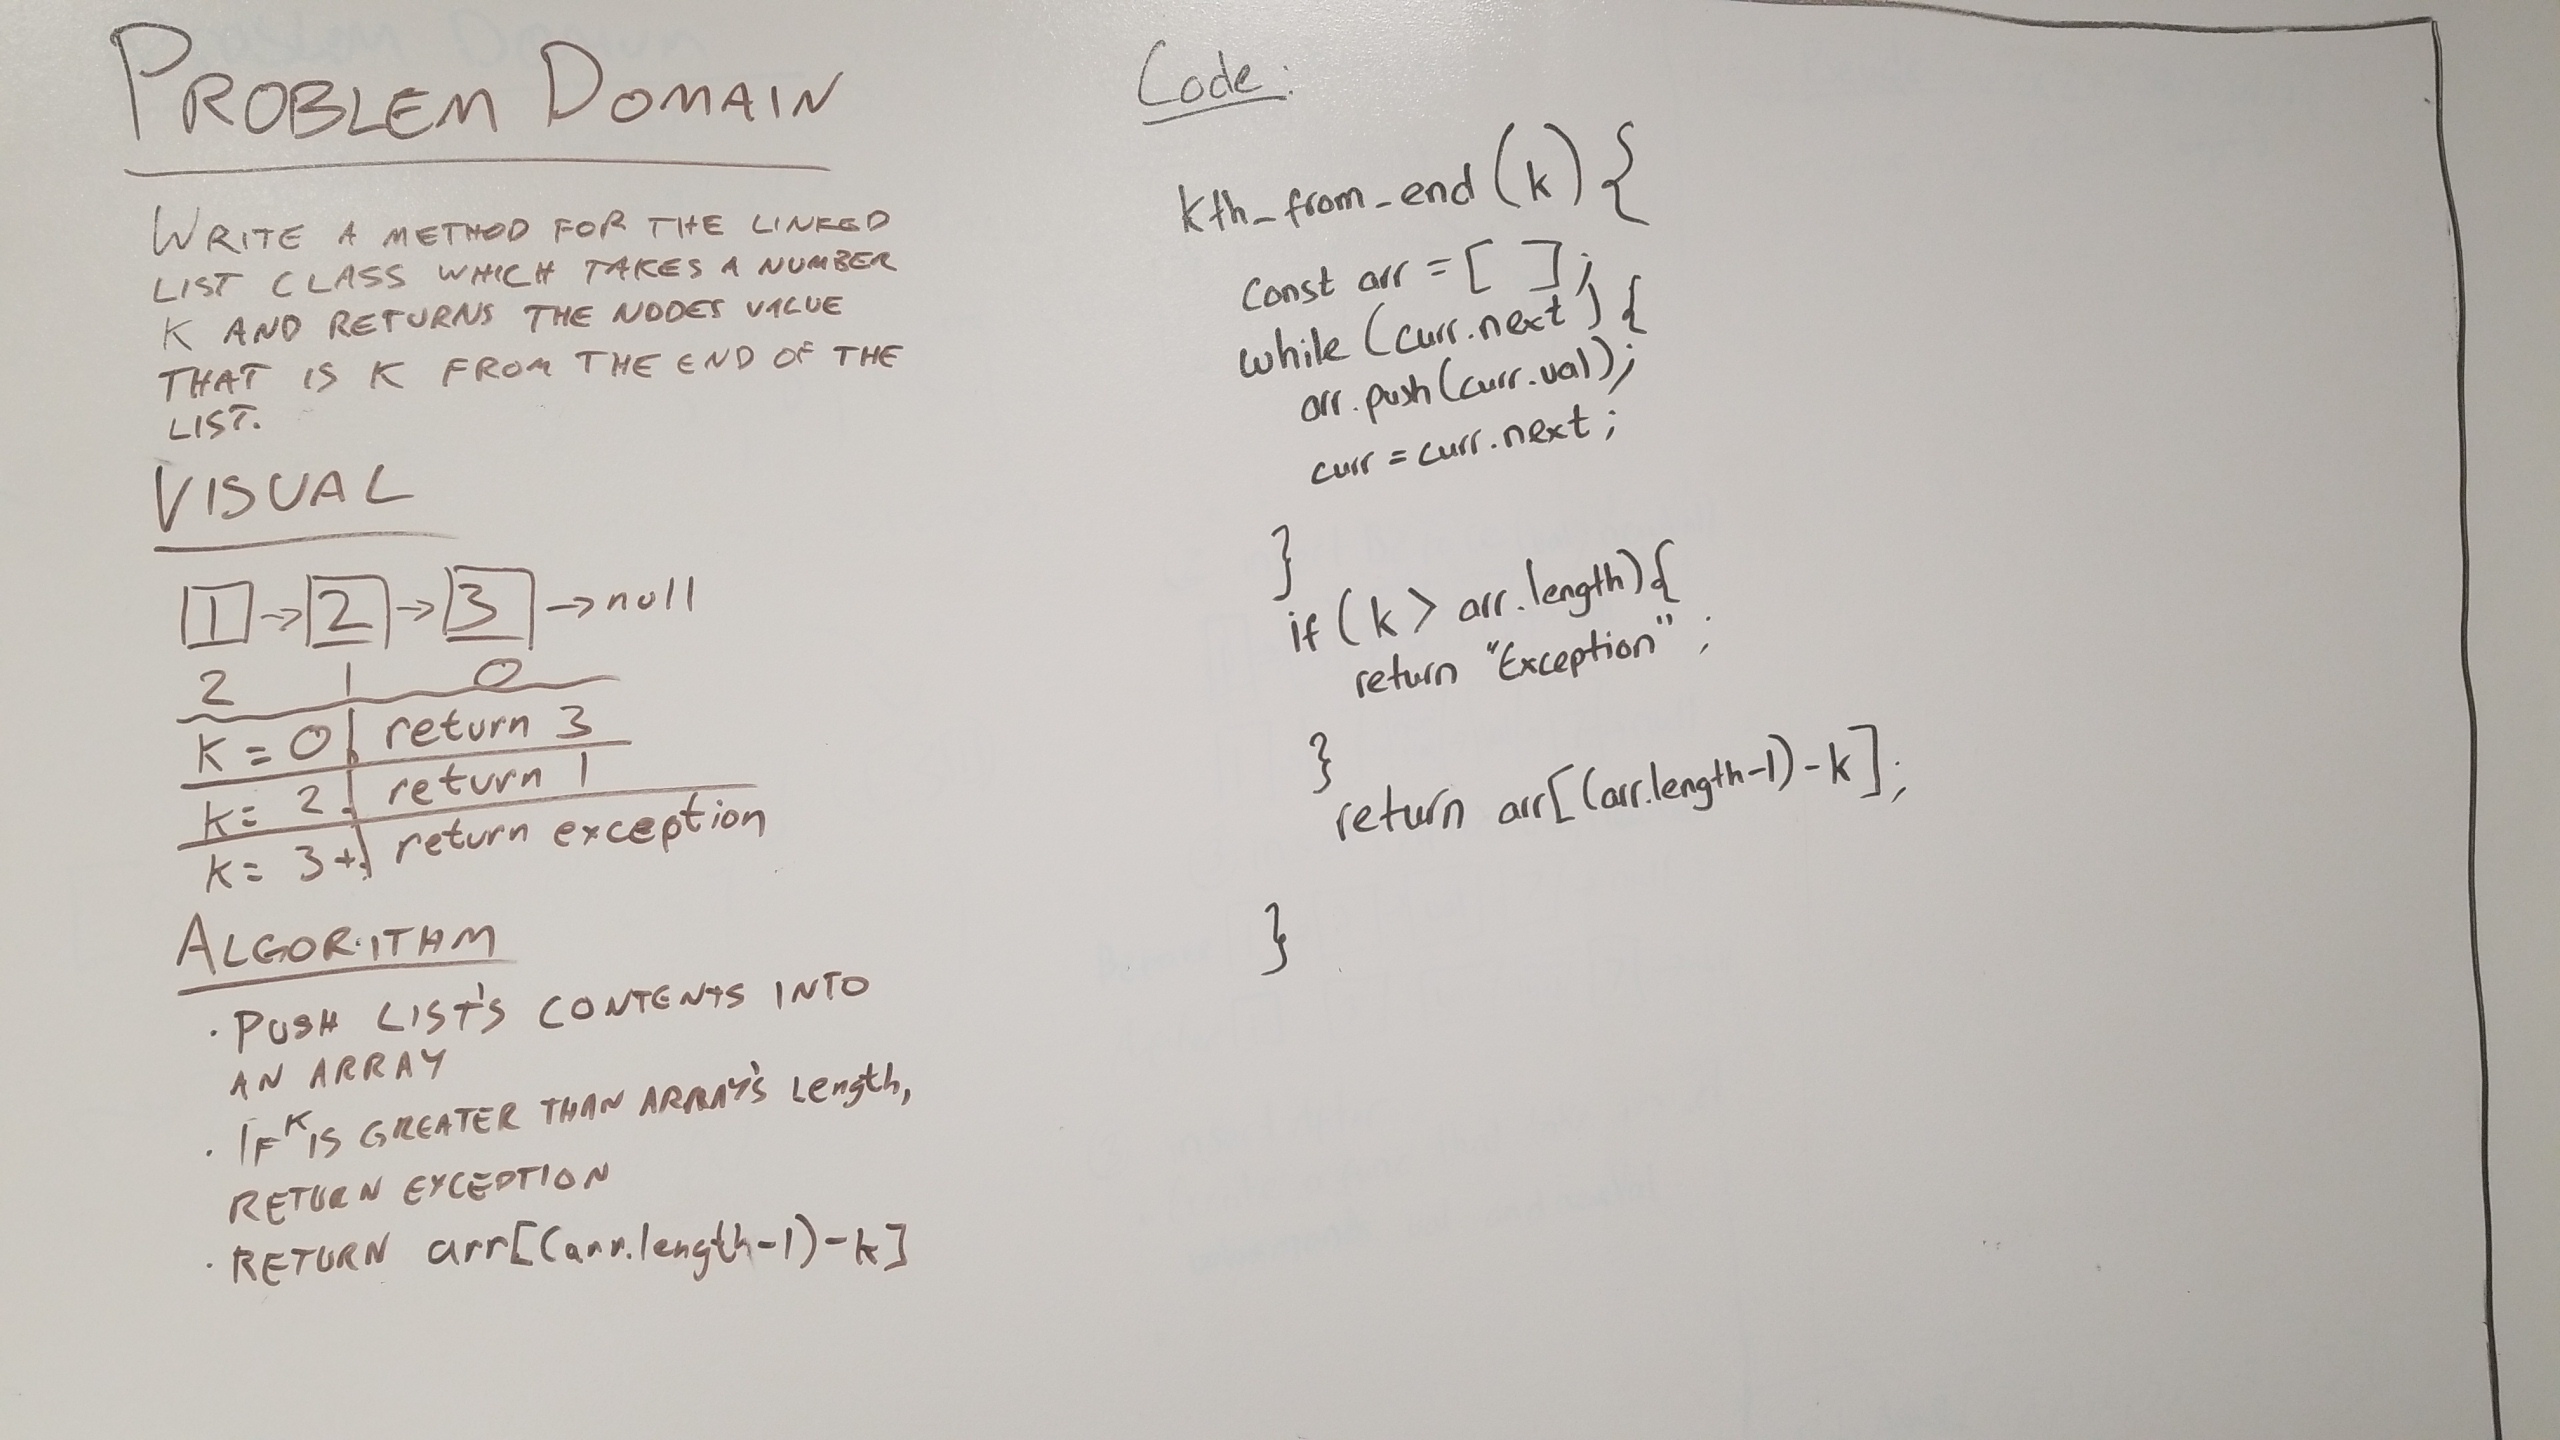 PROBLEM DOMAIN
WRITE A METHOD FOR THE LINKED
LIST CLASS WHICH TAKES A NUMBER
K AND RETURNS THE NODES VALUE
THAT IS K FROM THE END OF THE
LIST.
VISUAL
1 → 2 → 3 → null
2 1 0
K = 0 return 3
K = 2 return 1
K = 3+ return exception
ALGORITHM
· PUSH LIST'S CONTENTS INTO
AN ARRAY
· IF K IS GREATER THAN ARRAY'S Length,
RETURN EXCEPTION
· RETURN arr[(arr.length-1)-k]
Code:
kth_from_end(k){
const arr = [ ];
while (curr.next) {
arr.push(curr.val);
curr = curr.next;
}
if (k > arr.length){
return "Exception";
}
return arr[(arr.length-1)-k];
}